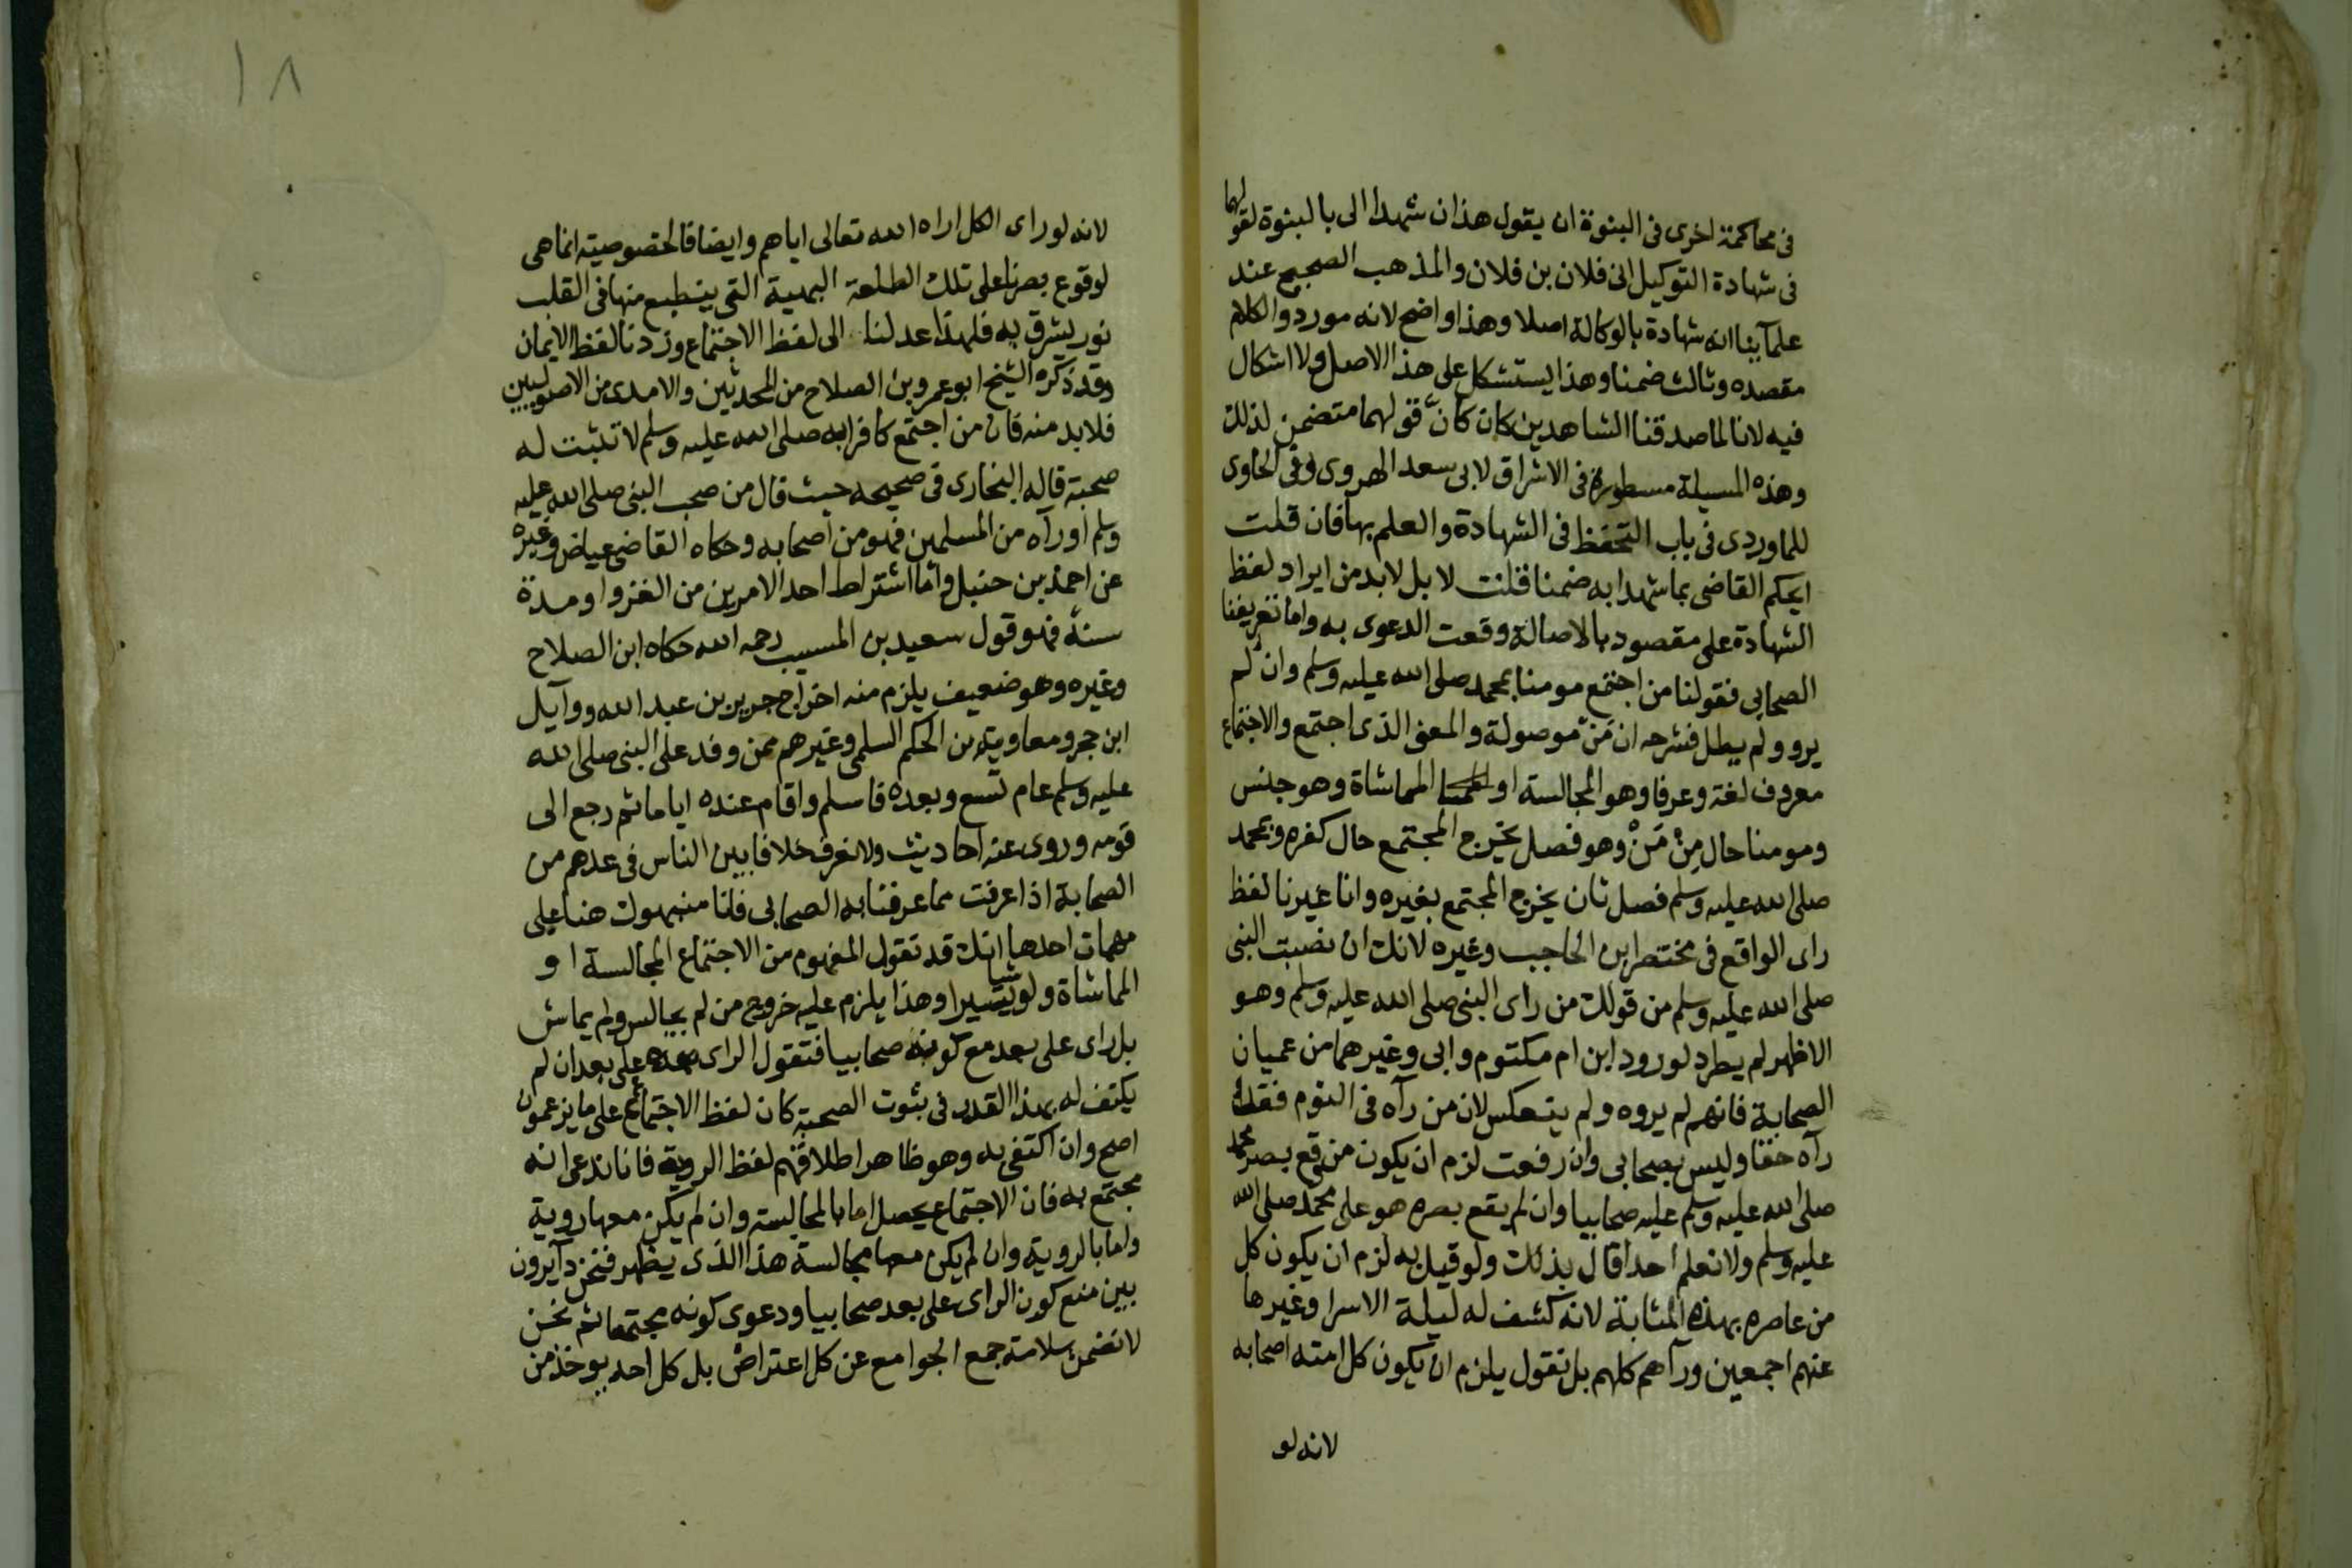 فى محاكمة اخرى فى البنوة ان يقول هذان شهدا الى بالبنوة لقولهما
فى شهادة التوكيل انى فلان بن فلان والمذهب الصحيح عند
علمآينا انه شهادة بالوكالة اصلا وهذا واضح لانه مورد والكلام
مقصده وثالث ضمنا وهذا يستشكل على هذا الاصل ولا اشكال
فيه لانا لما صدقنا الشاهدين كان كان قولهما متضمن لذلك
وهذه المسيلة مسطورة فى الاشراق لابى سعد الهروى وفى الحاوى
للماوردى فى باب التحفظ فى الشهادة والعلم بها فان قلت
ايحكم القاضى بما شهدا به ضمنا قلت لا بل لابد من ايراد لفظ
الشهادة على مقصود بالاصالة وقعت الدعوى به واما تعريفنا
الصحابى فقولنا من اجتمع مومنا بمحمد صلى الله عليه وسلم وان لم
يرو ولم يطل فشرحه ان مَنْ موصولة والمعنى الذى اجتمع والاجتماع
معروف لغة وعرفا وهو المجالسة او المماشاة وهو جنس
ومومنا حال مِنْ مَنْ وهو فصل يخرج المجتمع حال كفره وبمحمد
صلى الله عليه وسلم فصل ثان يخرج المجتمع بغيره وانا غيرنا لفظ
راى الواقع فى مختصر ابن الحاجب وغيره لانك ان نصبت النبى
صلى الله عليه وسلم من قولك من راى النبى صلى الله عليه وسلم وهو
الاظهر لم يطرد لورود ابن ام مكتوم وابى وغيرهما من عميان
الصحابة فانهم لم يروه ولم ينعكس لان من رآه فى النوم فقد
رآه حقا وليس بصحابى وان رفعت لزم ان يكون من وقع بصر محمد
صلى الله عليه وسلم عليه صحابيا وان لم يقع بصره هو على محمد صلى الله
عليه وسلم ولا نعلم احدا قال بذلك ولو قيل به لزم ان يكون كل
من عاصره بهذه المثابة لانه كشف له ليلة الاسرا وغيرها
عنهم اجمعين ورآهم كلهم بل نقول يلزم ان يكون كل امته اصحابه
لانه لو
١٨
لانه لو راى الكل اراه الله تعالى اياهم وايضا فالخصوصيته انما هى
لوقوع بصرنا على تلك الطلعة البهية التى ينطبع منها فى القلب
نور يشرق به فلهذا عدلنا الى لفظ الاجتماع وزدنا لفظ الايمان
وقد ذكره الشيخ ابو عمرو بن الصلاح من المحدثين والامدى من الاصوليين
فلابد منه فان من اجتمع كافرا به صلى الله عليه وسلم لا تثبت له
صحبة قاله البخارى فى صحيحه حيث قال من صحب النبى صلى الله عليه
وسلم او رآه من المسلمين فهو من اصحابه وحكاه القاضى عياض وغيره
عن احمد بن حنبل واما اشتراط احد الامرين من الغزو او مدة
سنة فهو قول سعيد بن المسيب رحمه الله حكاه ابن الصلاح
وغيره وهو ضعيف يلزم منه اخراج جرير بن عبد الله ووآيل
ابن حجر ومعاوية بن الحكم السلمى وغيرهم ممن وفد على النبى صلى الله
عليه وسلم عام تسع وبعده فاسلم واقام عنده اياما ثم رجع الى
قومه وروى عنه احاديث ولا نعرف خلافا بين الناس فى عدهم من
الصحابة اذا عرفت مما عرفنا به الصحابى فلنا منبهون هنا على
مهمات احدها انك قد تقول المفهوم من الاجتماع المجالسة او
المماشاة ولو شيا يسيرا وهذا يلزم عليه خروج من لم يجالس ولم يماش
بل راى على بعد مع كونه صحابيا فتقول الراى على بعد ان لم
يكتف له بهذا القدر فى ثبوت الصحبة كان لفظ الاجتماع على ما يزعمون
اصح وان اكتفى به وهو ظاهر اطلاقهم لفظ الروية فانا ندعى انه
مجتمع به فان الاجتماع يحصل اما بالمجالسة وان لم يكن معها روية
واما بالروية وان لم يكن معها مجالسة هذا الذى يظهر فنحن دآيرون
بين منع كون الراى على بعد صحابيا ودعوى كونه مجتمعا ثم نحن
لا نضمن سلامة جمع الجوامع عن كل اعتراض بل كل احد يوخذ من